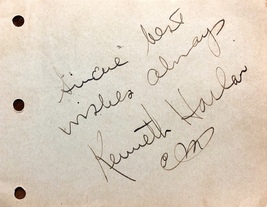 Sincere best
wishes always
Kenneth Harlan